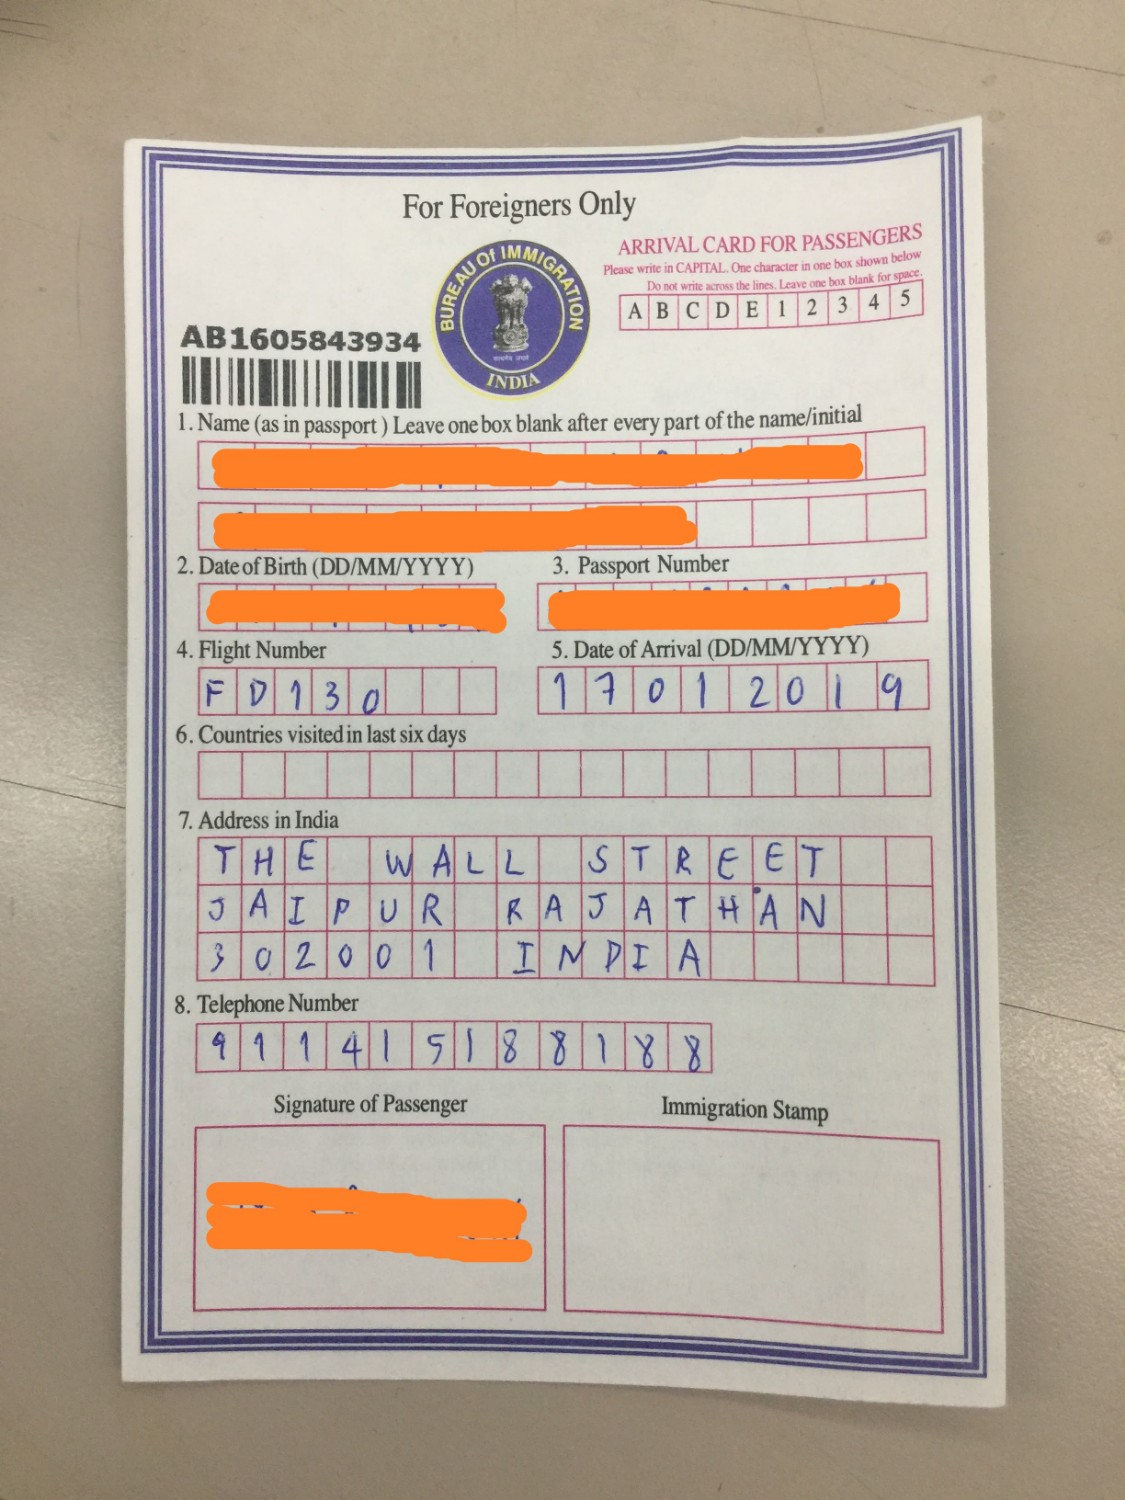 For Foreigners Only
BUREAU Of IMMIGRATION
INDIA
ARRIVAL CARD FOR PASSENGERS
Please write in CAPITAL. One character in one box shown below
Do not write across the lines. Leave one box blank for space.
A B C D E 1 2 3 4 5
AB1605843934
1. Name (as in passport ) Leave one box blank after every part of the name/initial
2. Date of Birth (DD/MM/YYYY)
3. Passport Number
4. Flight Number
FD130
5. Date of Arrival (DD/MM/YYYY)
17012019
6. Countries visited in last six days
7. Address in India
THE WALL STREET
JAIPUR RAJATHAN
302001 INDIA
8. Telephone Number
911415188188
Signature of Passenger
Immigration Stamp